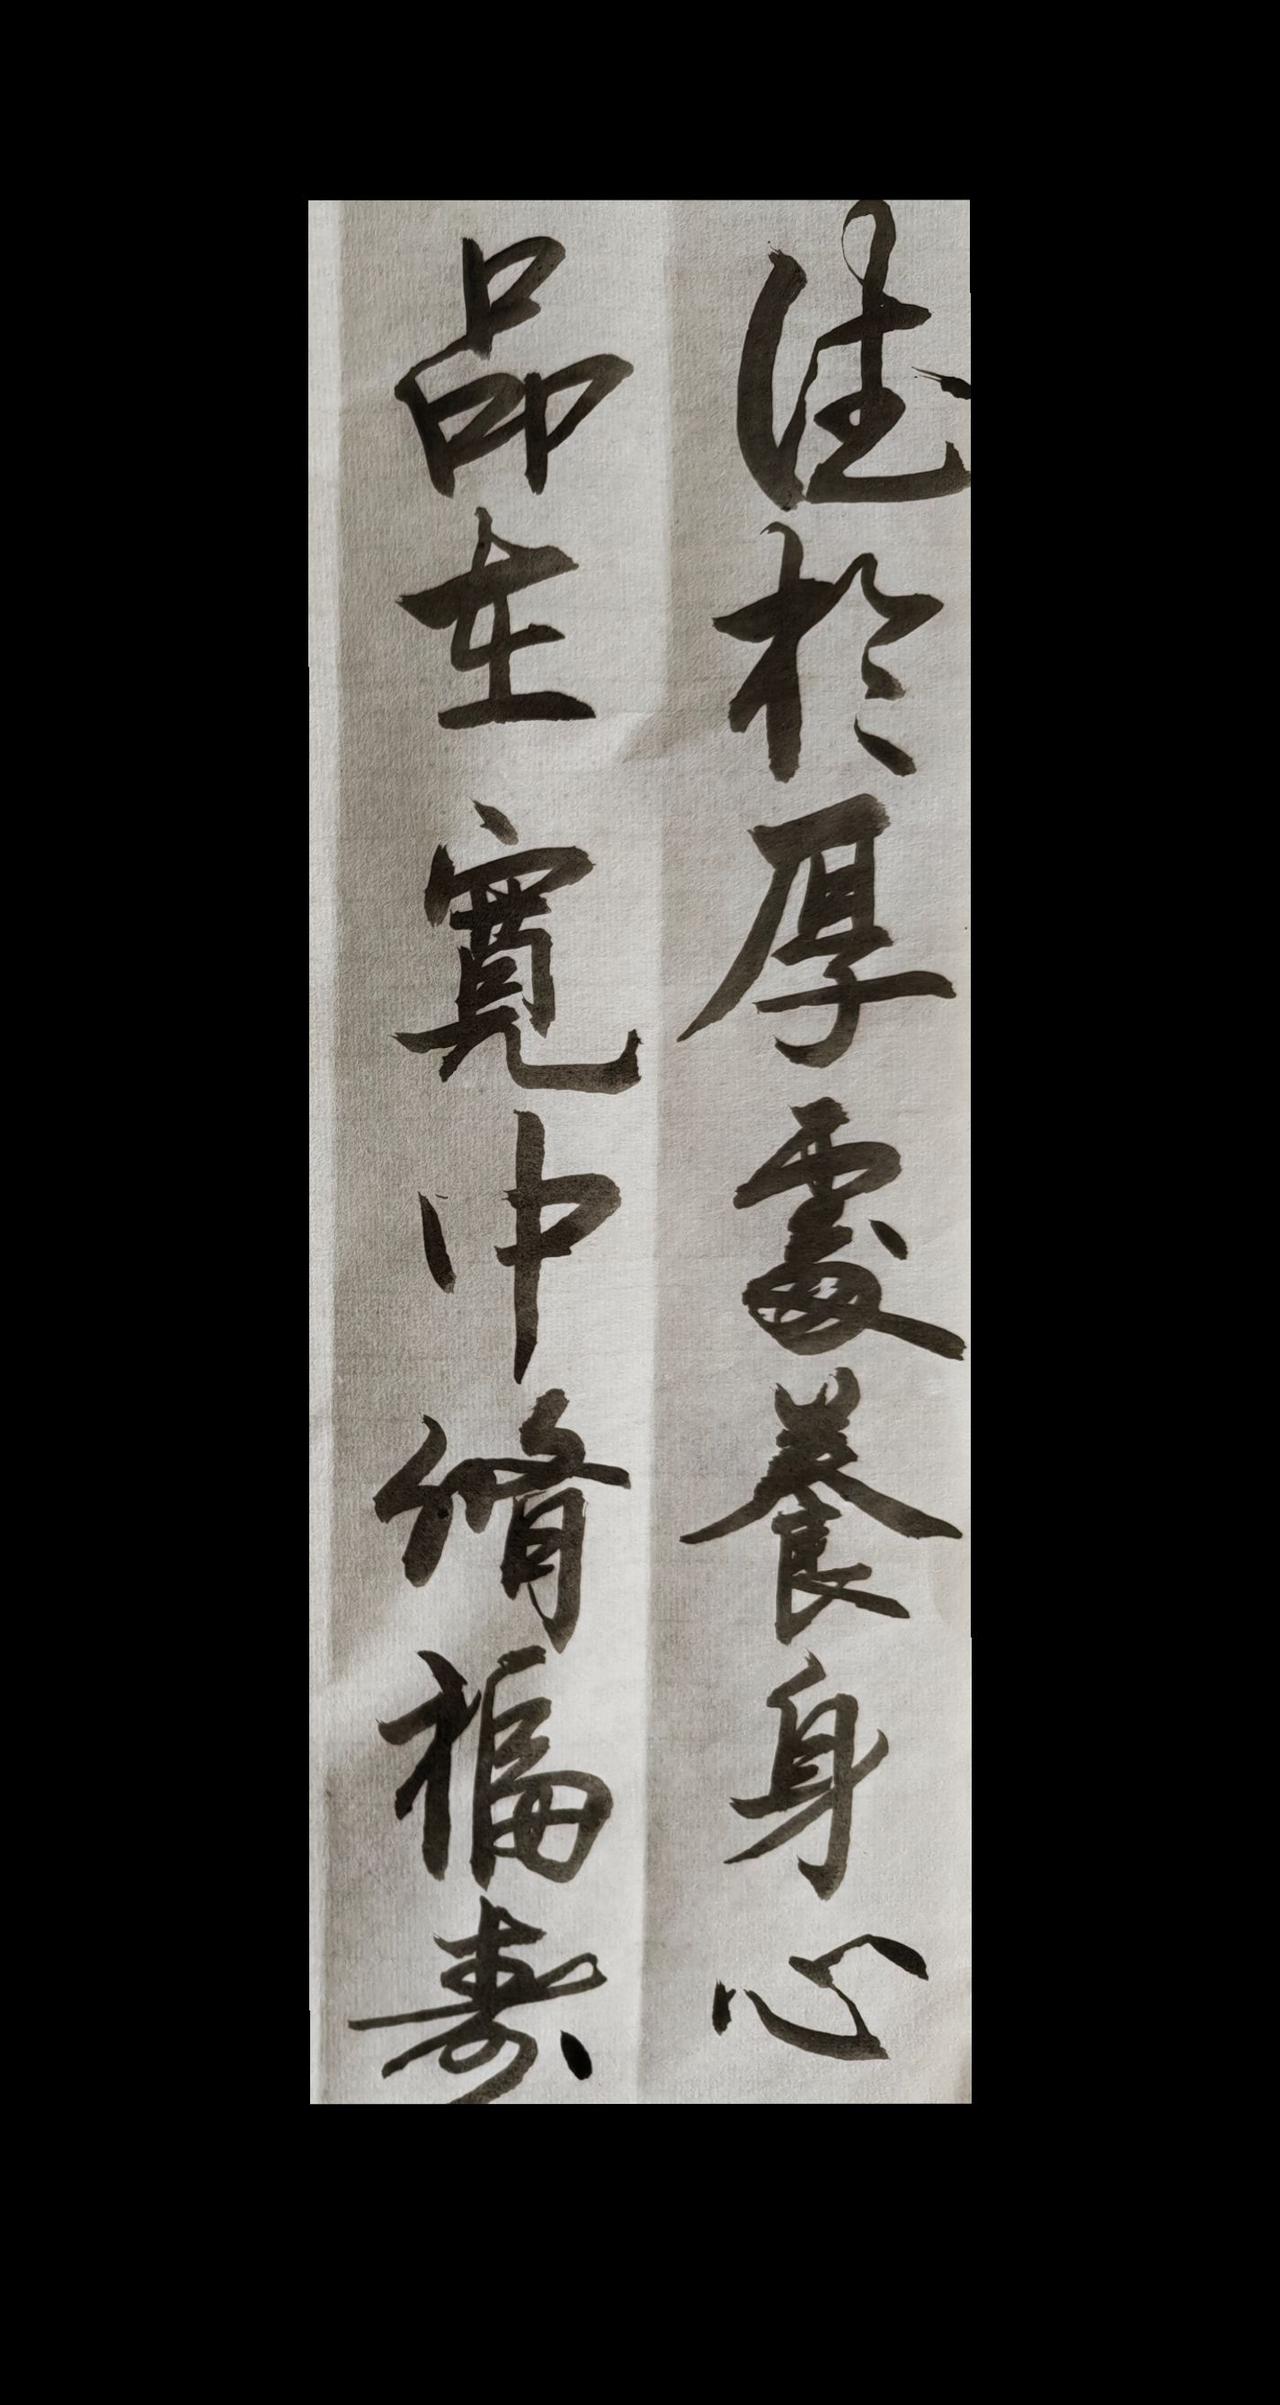 德於厚處養身心
品在寬中脩福壽